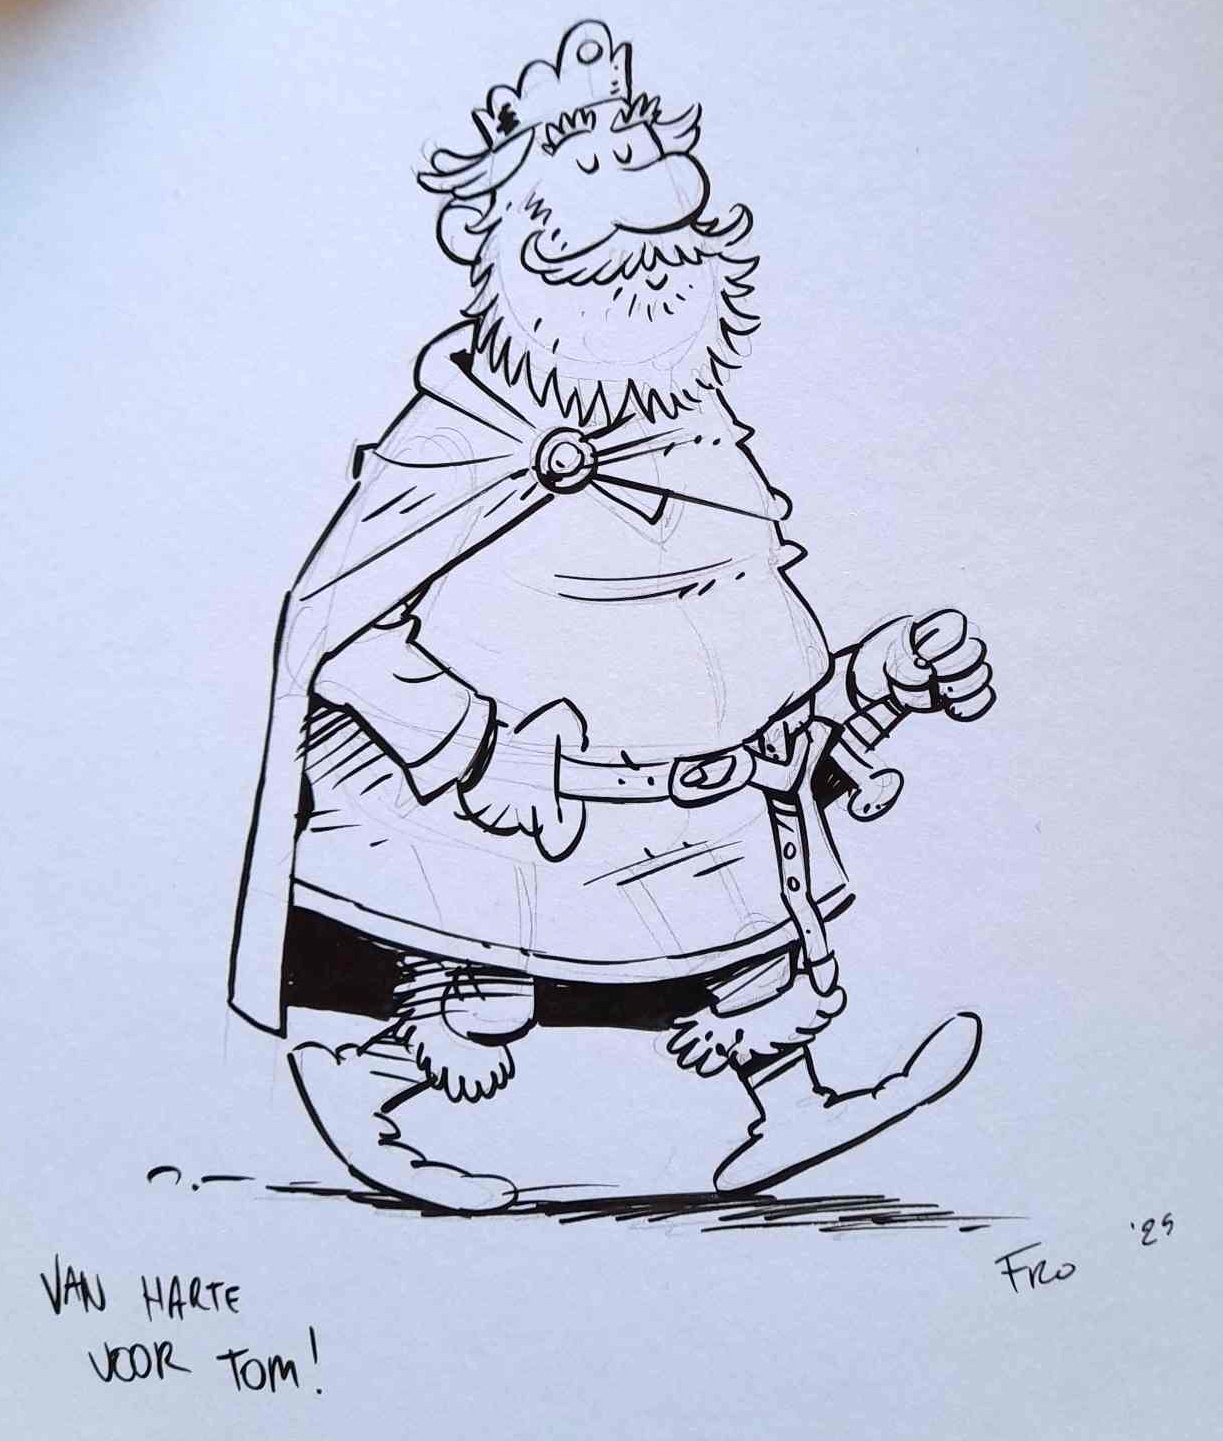 VAN HARTE
VOOR TOM!
FRO '25